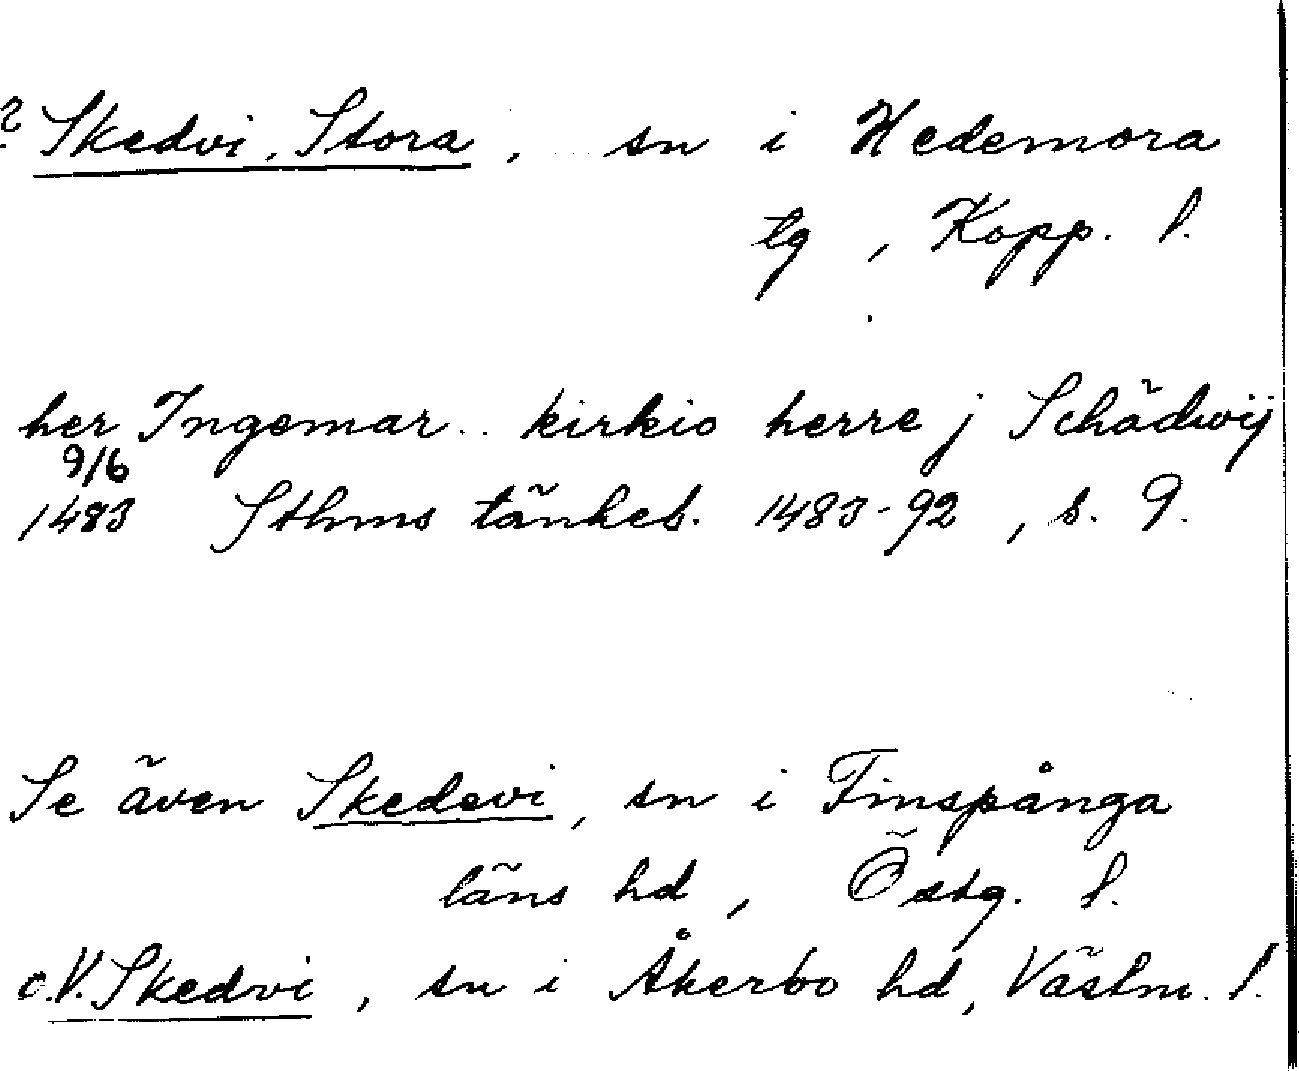 ? Skedvi, Stora, sn i Hedemora
tg, Kopp. l.
her Ingemar .. kirkio herre j Schädwij
9/6
1483 Sthms tänkeb. 1483-92, s. 9.
Se även Skedevi, sn i Finspånga
läns hd, Östg. l.
o. V. Skedvi, sn i Åkerbo hd, Västm. l.